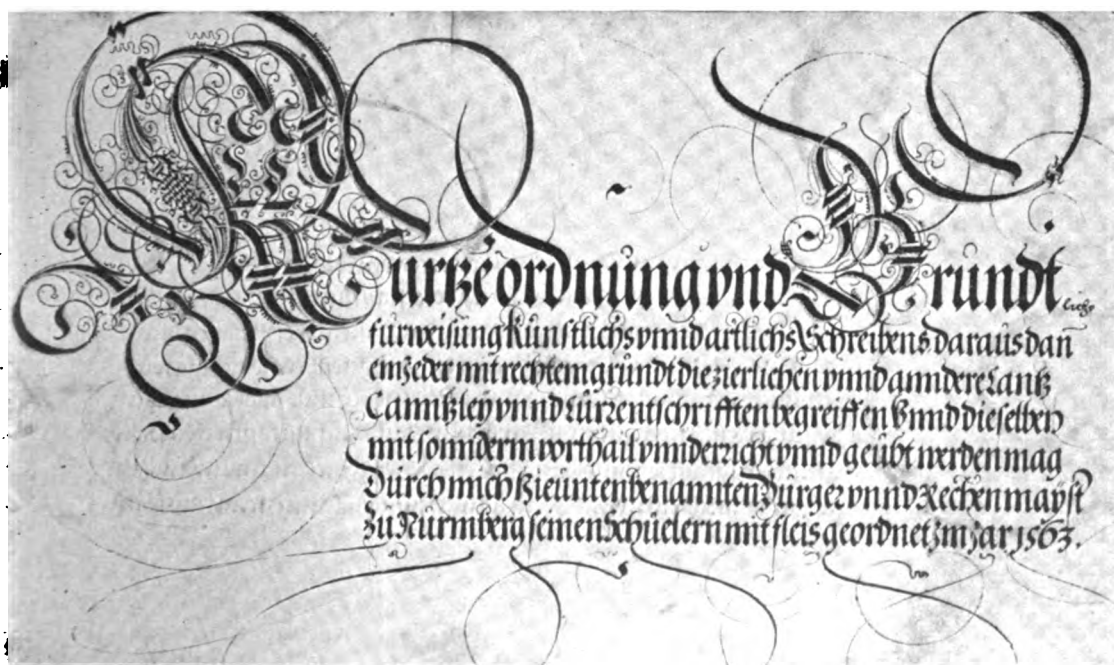 Kurtze ordnung vnd Gründtliche
fürweisung Künstlichs vnnd artlichs Schreibens daraus dan
ein Jeder mit rechtem gründt die zierlichen vnnd anndere Lantz
Canntzley vnnd Kurrentschrifften begreiffen Vnnd dieselben
mit sonnderm vorthail vnnderricht vnnd geübt werden mag
Dürch mich hie üntenbenannten Bürger vnnd Rechenmayst
Zu Nürmberg seinen Schüelern mit fleis geordnet Im Jar 1563.